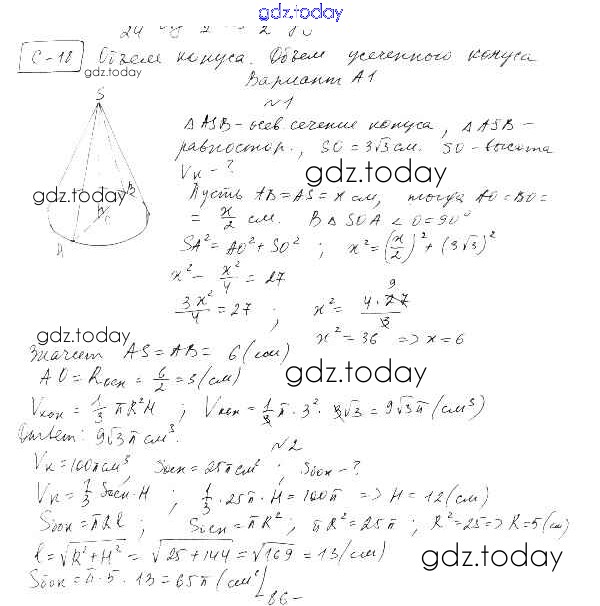 gdz.today
С-18 Объем конуса. Объем усеченного конуса
gdz.today
Вариант А1
№1
S
△ASB – осев. сечение конуса, △ASB –
равностор., SO = 3√3 см. SO – высота
Vк – ?
gdz.today
gdz.today
Пусть AB = AS = x см, тогда AO = BO =
= x/2 см. В △SOA ∠O = 90°
B
O
A
SA² = AO² + SO² ; x² = (x/2)² + (3√3)²
x² – x²/4 = 27
3x²/4 = 27 ; x² = 4·27/3 9
gdz.today
x² = 36 => x = 6
Значит AS = AB = 6 (см)
gdz.today
AO = Rосн = 6/2 = 3 (см)
Vкон = 1/3 πR²H ; Vкон = 1/3 π · 3² · 3√3 = 9√3π (см³)
Ответ: 9√3π см³.
№2
Vк = 100π см³, Sосн = 25π см² ; Sбок – ?
Vк = 1/3 Sосн · H ; 1/3 · 25π · H = 100π => H = 12 (см)
Sбок = πRl ; Sосн = πR² ; πR² = 25π ; R² = 25 => R = 5 (см)
l = √(R² + H²) = √(25 + 144) = √169 = 13 (см)
gdz.today
Sбок = π · 5 · 13 = 65π (см²)
- 86 -